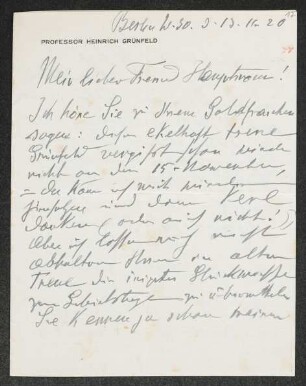 Berlin W. 30. d. 13. 11. 20
PROFESSOR HEINRICH GRÜNFELD
Mein lieber Freund Hauptmann!
Ich höre Sie zu Ihrem Goldfrauchen
sagen: dieser ekelhaft treue
Grünfeld vergißt schon wieder
nicht an den 15. November,
= da kann ich mich
hinsetzen und dem Kerl
danken, (oder auch nicht!)
Aber ich lasse mich nicht
abhalten Ihnen in alter
Treue die innigsten Glückwünsche
zum Geburtstage zu übermitteln
Sie kennen ja schon meinen